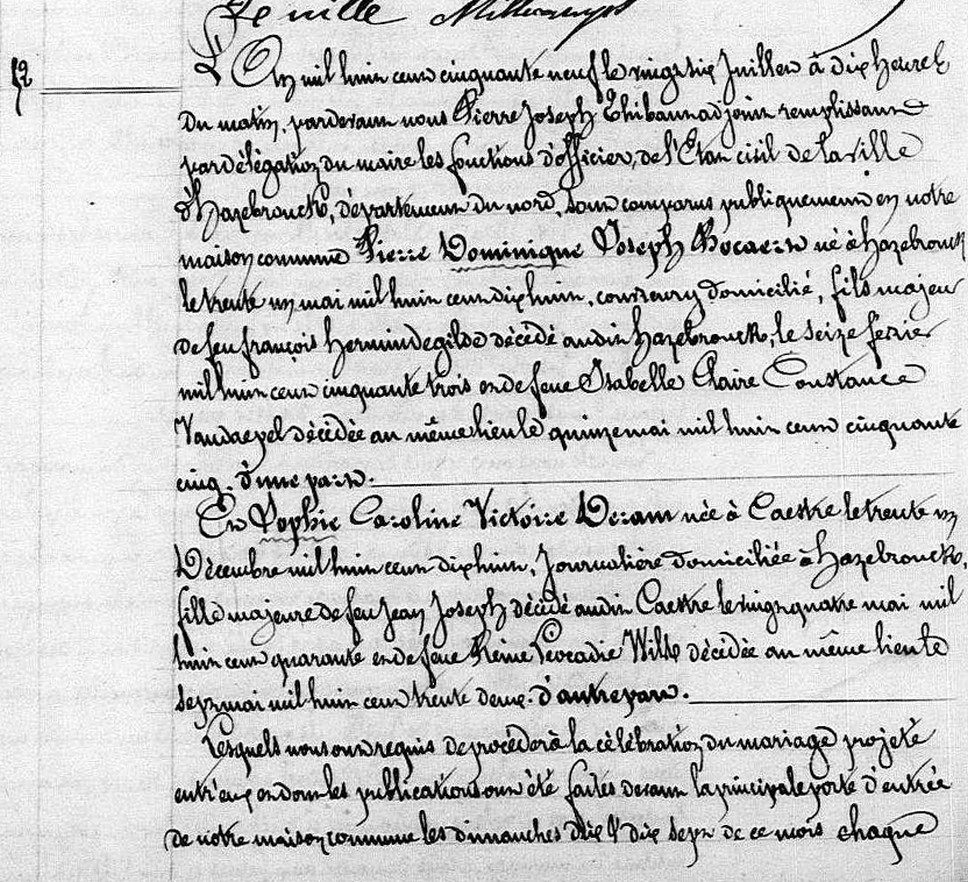 52
L'An mil huit cent cinquante neuf le vingt six Juillet à dix heures
du matin, pardevant nous Pierre Joseph Thibaut adjoint remplissant
par délégation du maire les fonctions d'officier, de l'Etat civil de la ville
d'Hazebrouck, département du nord, sont comparus publiquement en notre
maison commune Pierre Dominique Joseph Bocaert né à hazebrouck
le trente un mai mil huit cent dix huit, y domicilié, fils majeur
de feu françois hermindegilde décédé audit hazebrouck, le seize février
mil huit cent cinquante trois et de feue Isabelle Claire Constance
Vandaezel décédée au même lieu le quinze mai mil huit cent cinquante
cinq. d'une part.
Et Sophie Caroline Victoire Deram née à Caestre le trente un
Décembre mil huit cent dix huit, Journalière domiciliée à hazebrouck,
fille majeure de feu Jean Joseph décédé audit Caestre le vingt quatre mai mil
huit cent quarante et de feue Reine Léocadie Wils décédée au même lieu le
sept mai mil huit cent trente deux. d'autre part.
Lesquels nous ont requis de procéder à la célébration du mariage projeté
entr'eux et dont les publications ont été faites devant la principale porte d'entrée
de notre maison commune les dimanches dix & dix sept de ce mois chaque